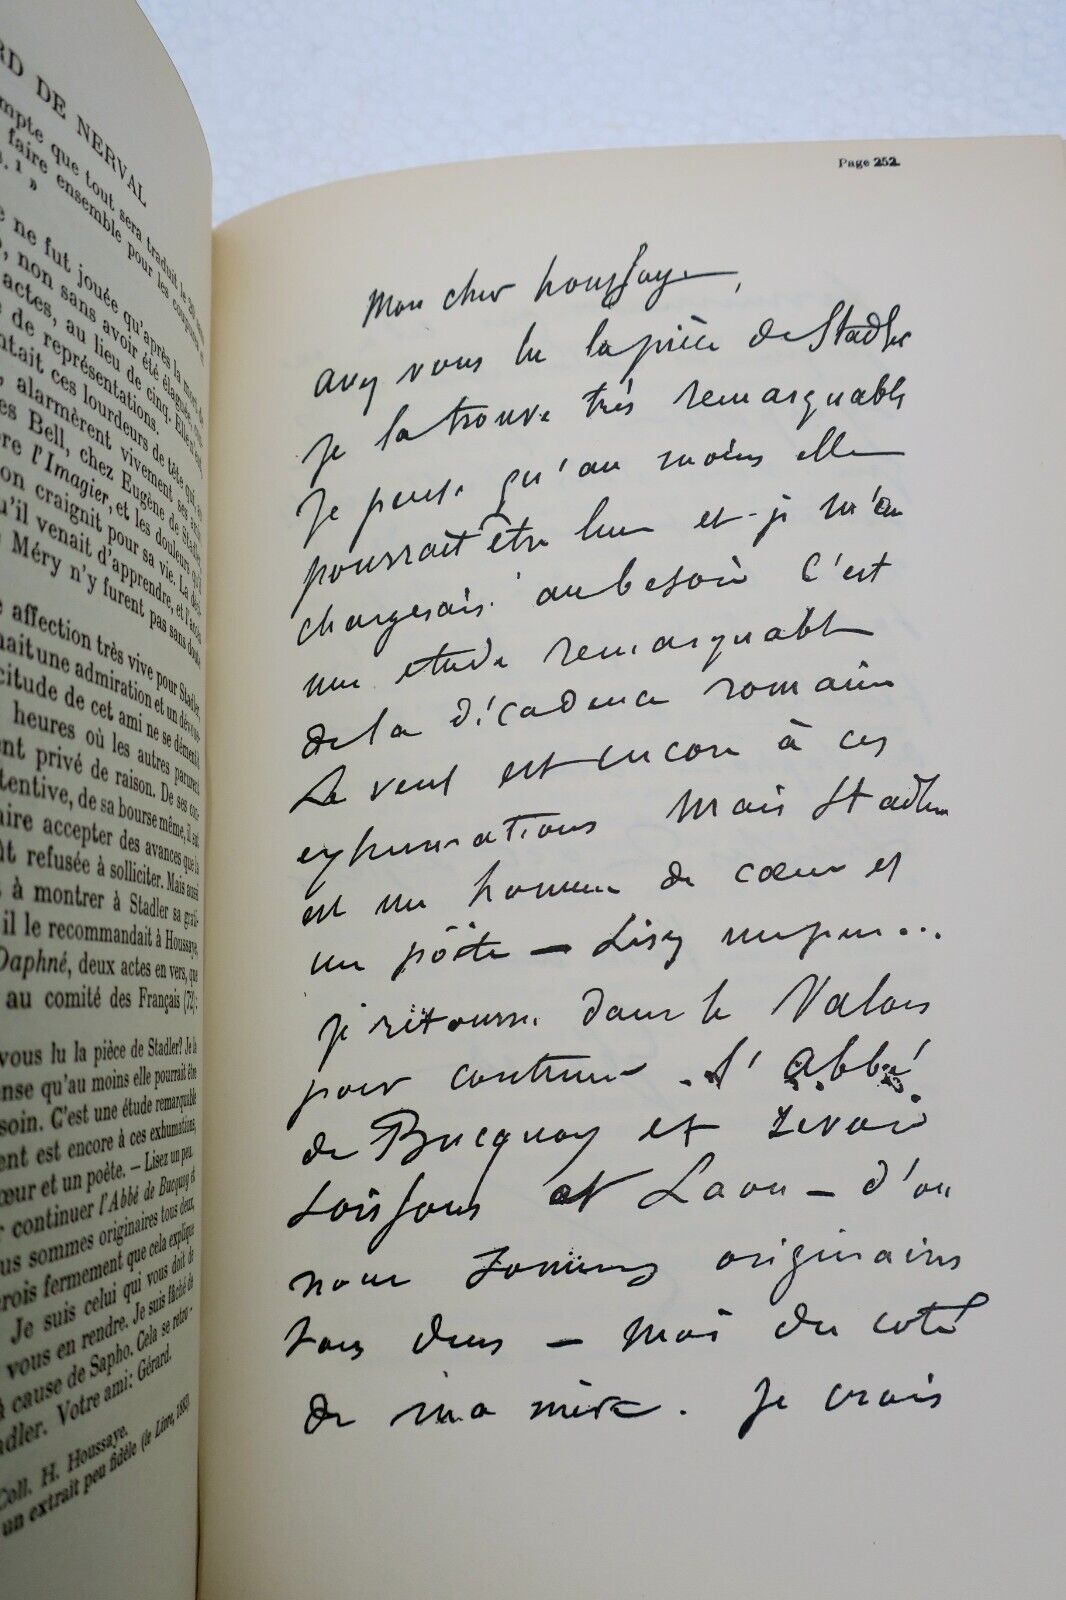 RD DE NERVAL
mpte que tout sera traduit le 20, et
faire ensemble pour les
. 1 »
e ne fut jouée qu'après la mort de
, non sans avoir été élaguée,
actes, au lieu de cinq. Elle n'eut,
e de représentations.
ntait ces lourdeurs de tête qui, en
, alarmèrent vivement ses amis
es Bell, chez Eugène de Stadler,
re l'Imagier, et les douleurs qu'il
on craignit pour sa vie. La
u'il venait d'apprendre, et l'accès
Méry n'y furent pas sans doute
affection très vive pour Stadler,
nait une admiration et un dévoue-
citude de cet ami ne se démentit
heures où les autres parurent
ent privé de raison. De ses con-
tentive, de sa bourse même, il sut
aire accepter des avances que la
ût refusée à solliciter. Mais aussi
à montrer à Stadler sa grati-
il le recommandait à Houssaye,
Daphné, deux actes en vers, que
au comité des Français (72):
vous lu la pièce de Stadler? Je la
ense qu'au moins elle pourrait être
soin. C'est une étude remarquable
ent est encore à ces exhumations,
œur et un poète. — Lisez un peu.
r continuer l'Abbé de Bucquoy et
us sommes originaires tous deux,
rois fermement que cela explique
Je suis celui qui vous doit de
vous en rendre. Je suis fâché de
à cause de Sapho. Cela se retro-
adler. Votre ami: Gérard.
Coll. H. Houssaye.
un extrait peu fidèle (le Livre, 1883)
Page 252.
Mon cher houssaye,
avez vous lu la pièce de Stadler
Je la trouve très remarquable
Je pense qu'au moins elle
pourrait être lue et je m'en
chargerais au besoin C'est
une etude remarquable
de la décadence romaine
Le vent est encore à ces
exhumations Mais Stadler
est un homme de cœur et
un pöète — Lisez un peu...
je retourne dans le Valois
pour continuer l'Abbé
de Bucquoy et revoir
Soissons et Laon — d'ou
nous sommes originaires
tous deux — moi du coté
de ma mère. Je crois